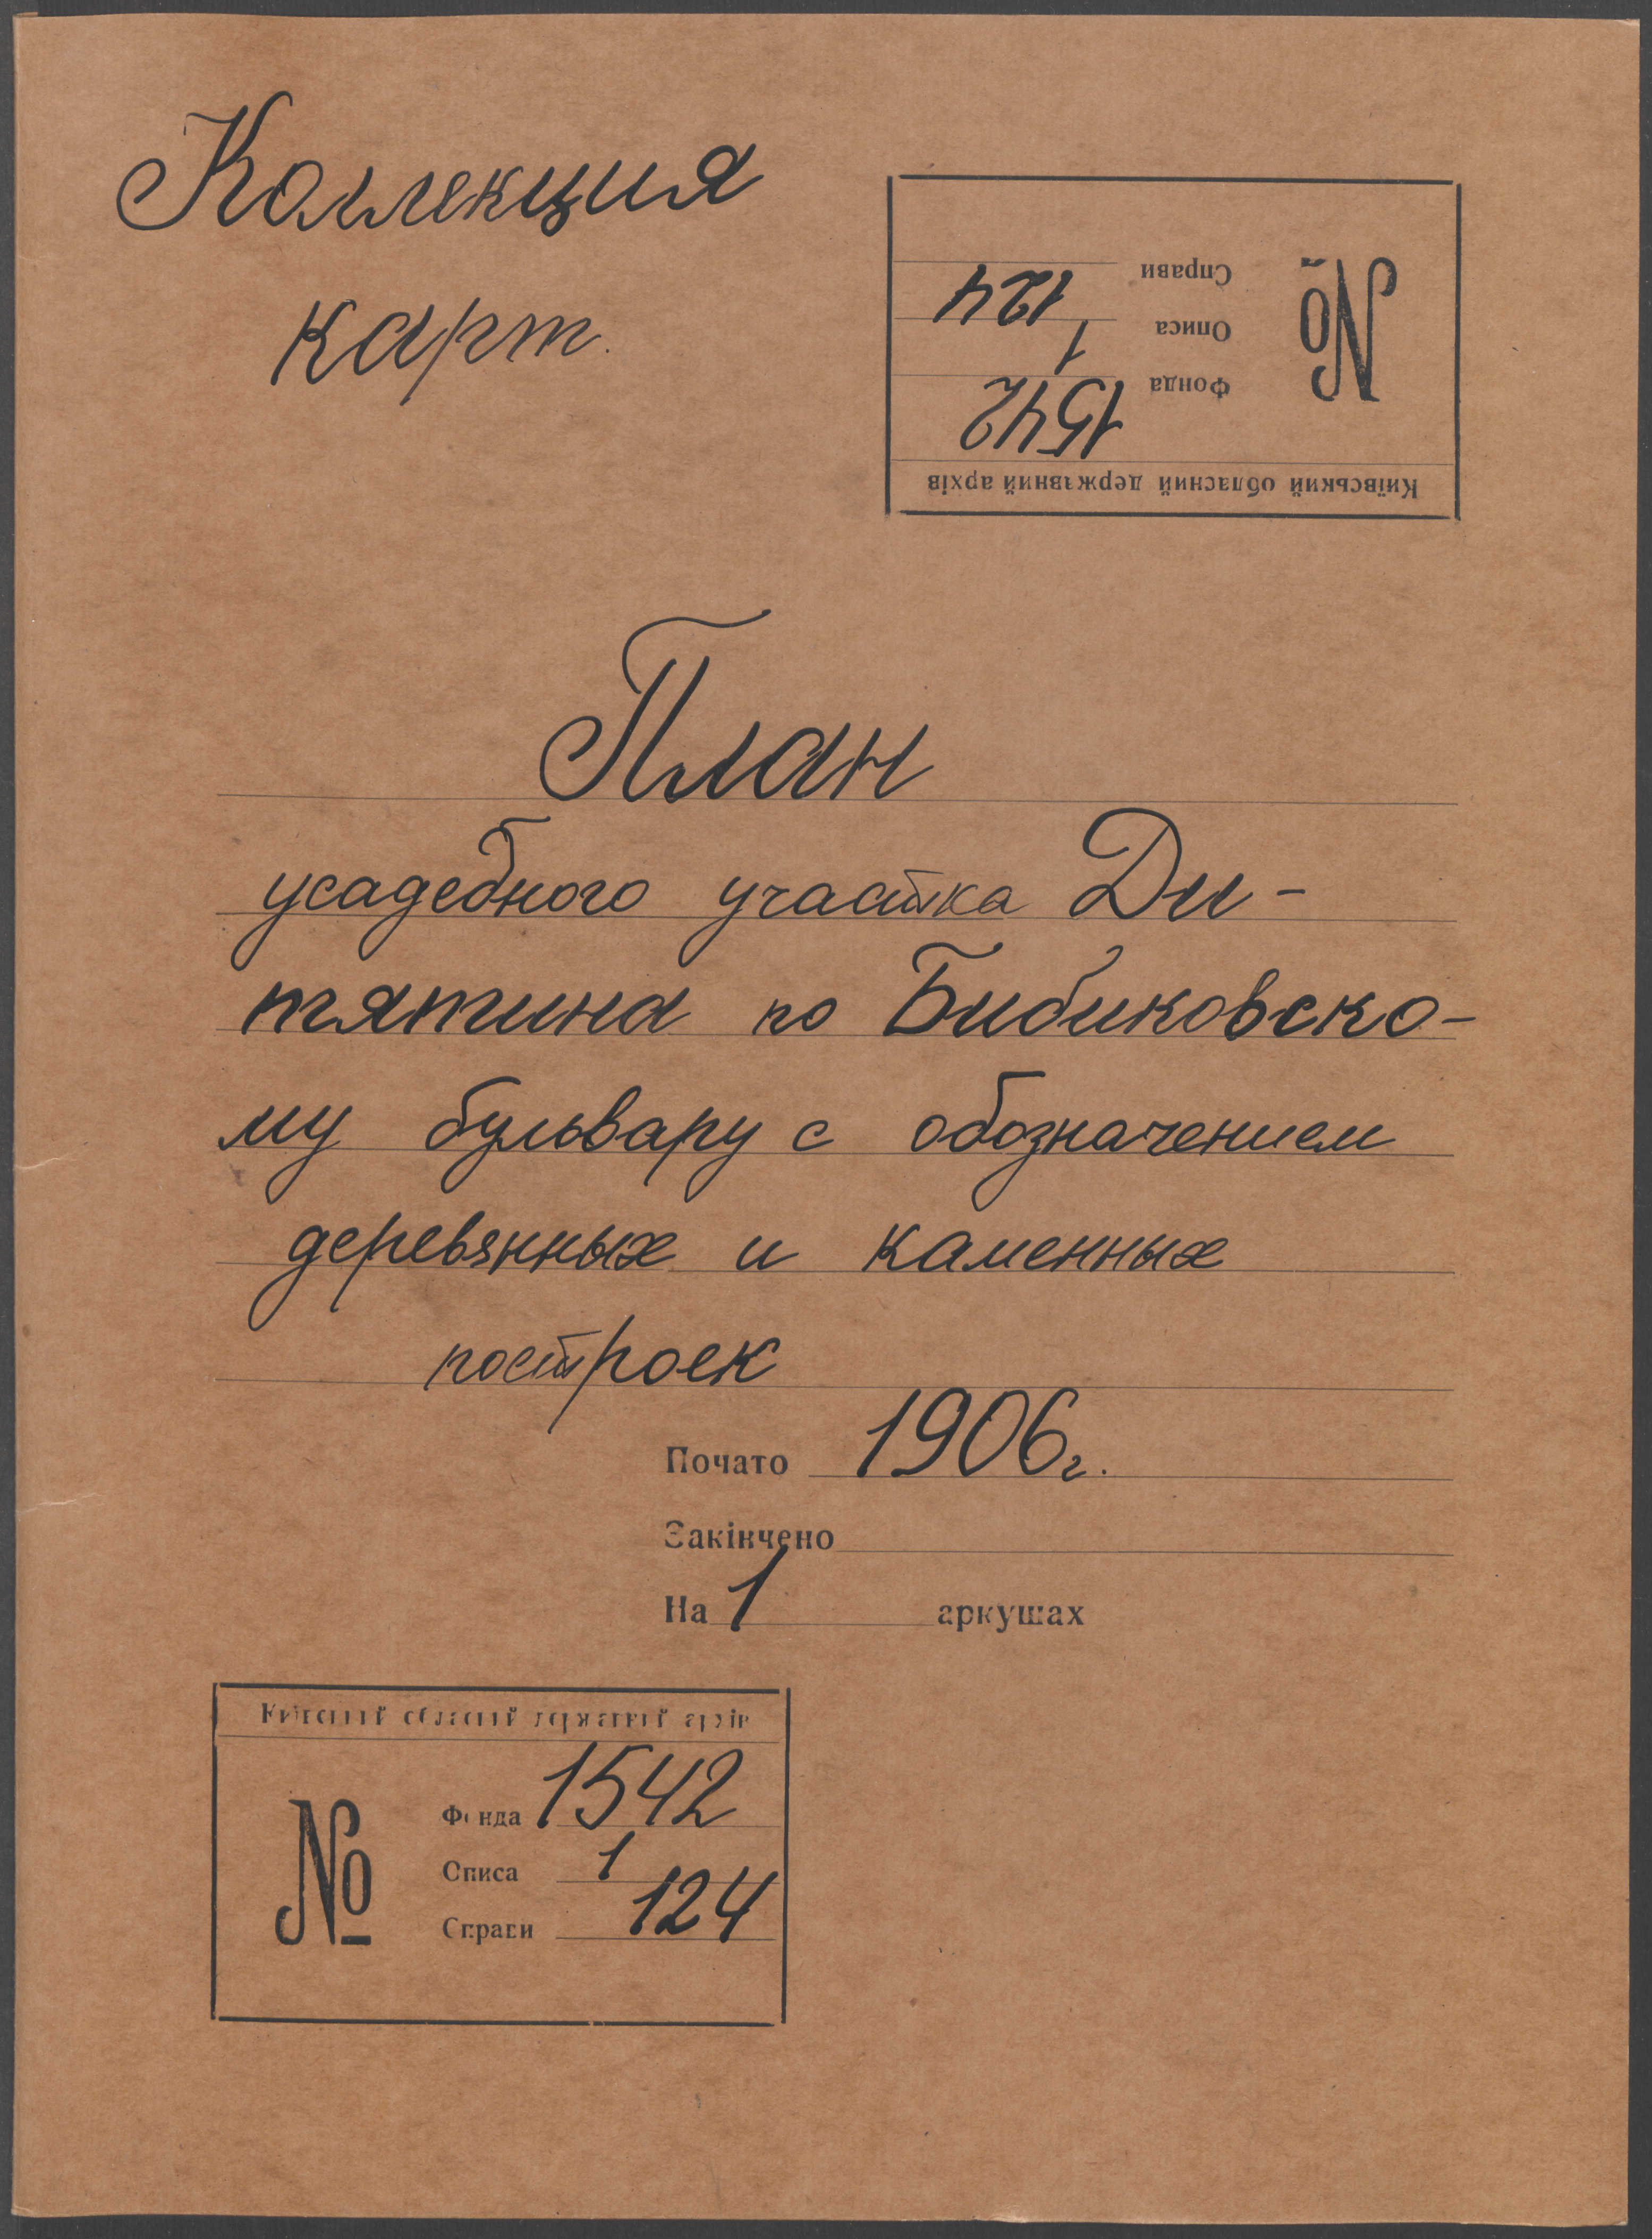 Коллекция
карт.
Київський обласний державний архів
№
Фонда 1542
Описа 1
Справи 124
План
усадебного участка Ди-
тятина по Бибиковско-
му бульвару с обозначением
деревянных и каменных
построек
Почато 1906г.
Закінчено
На 1 аркушах
Київський обласний державний архів
№
Фонда 1542
Описа 1
Справи 124